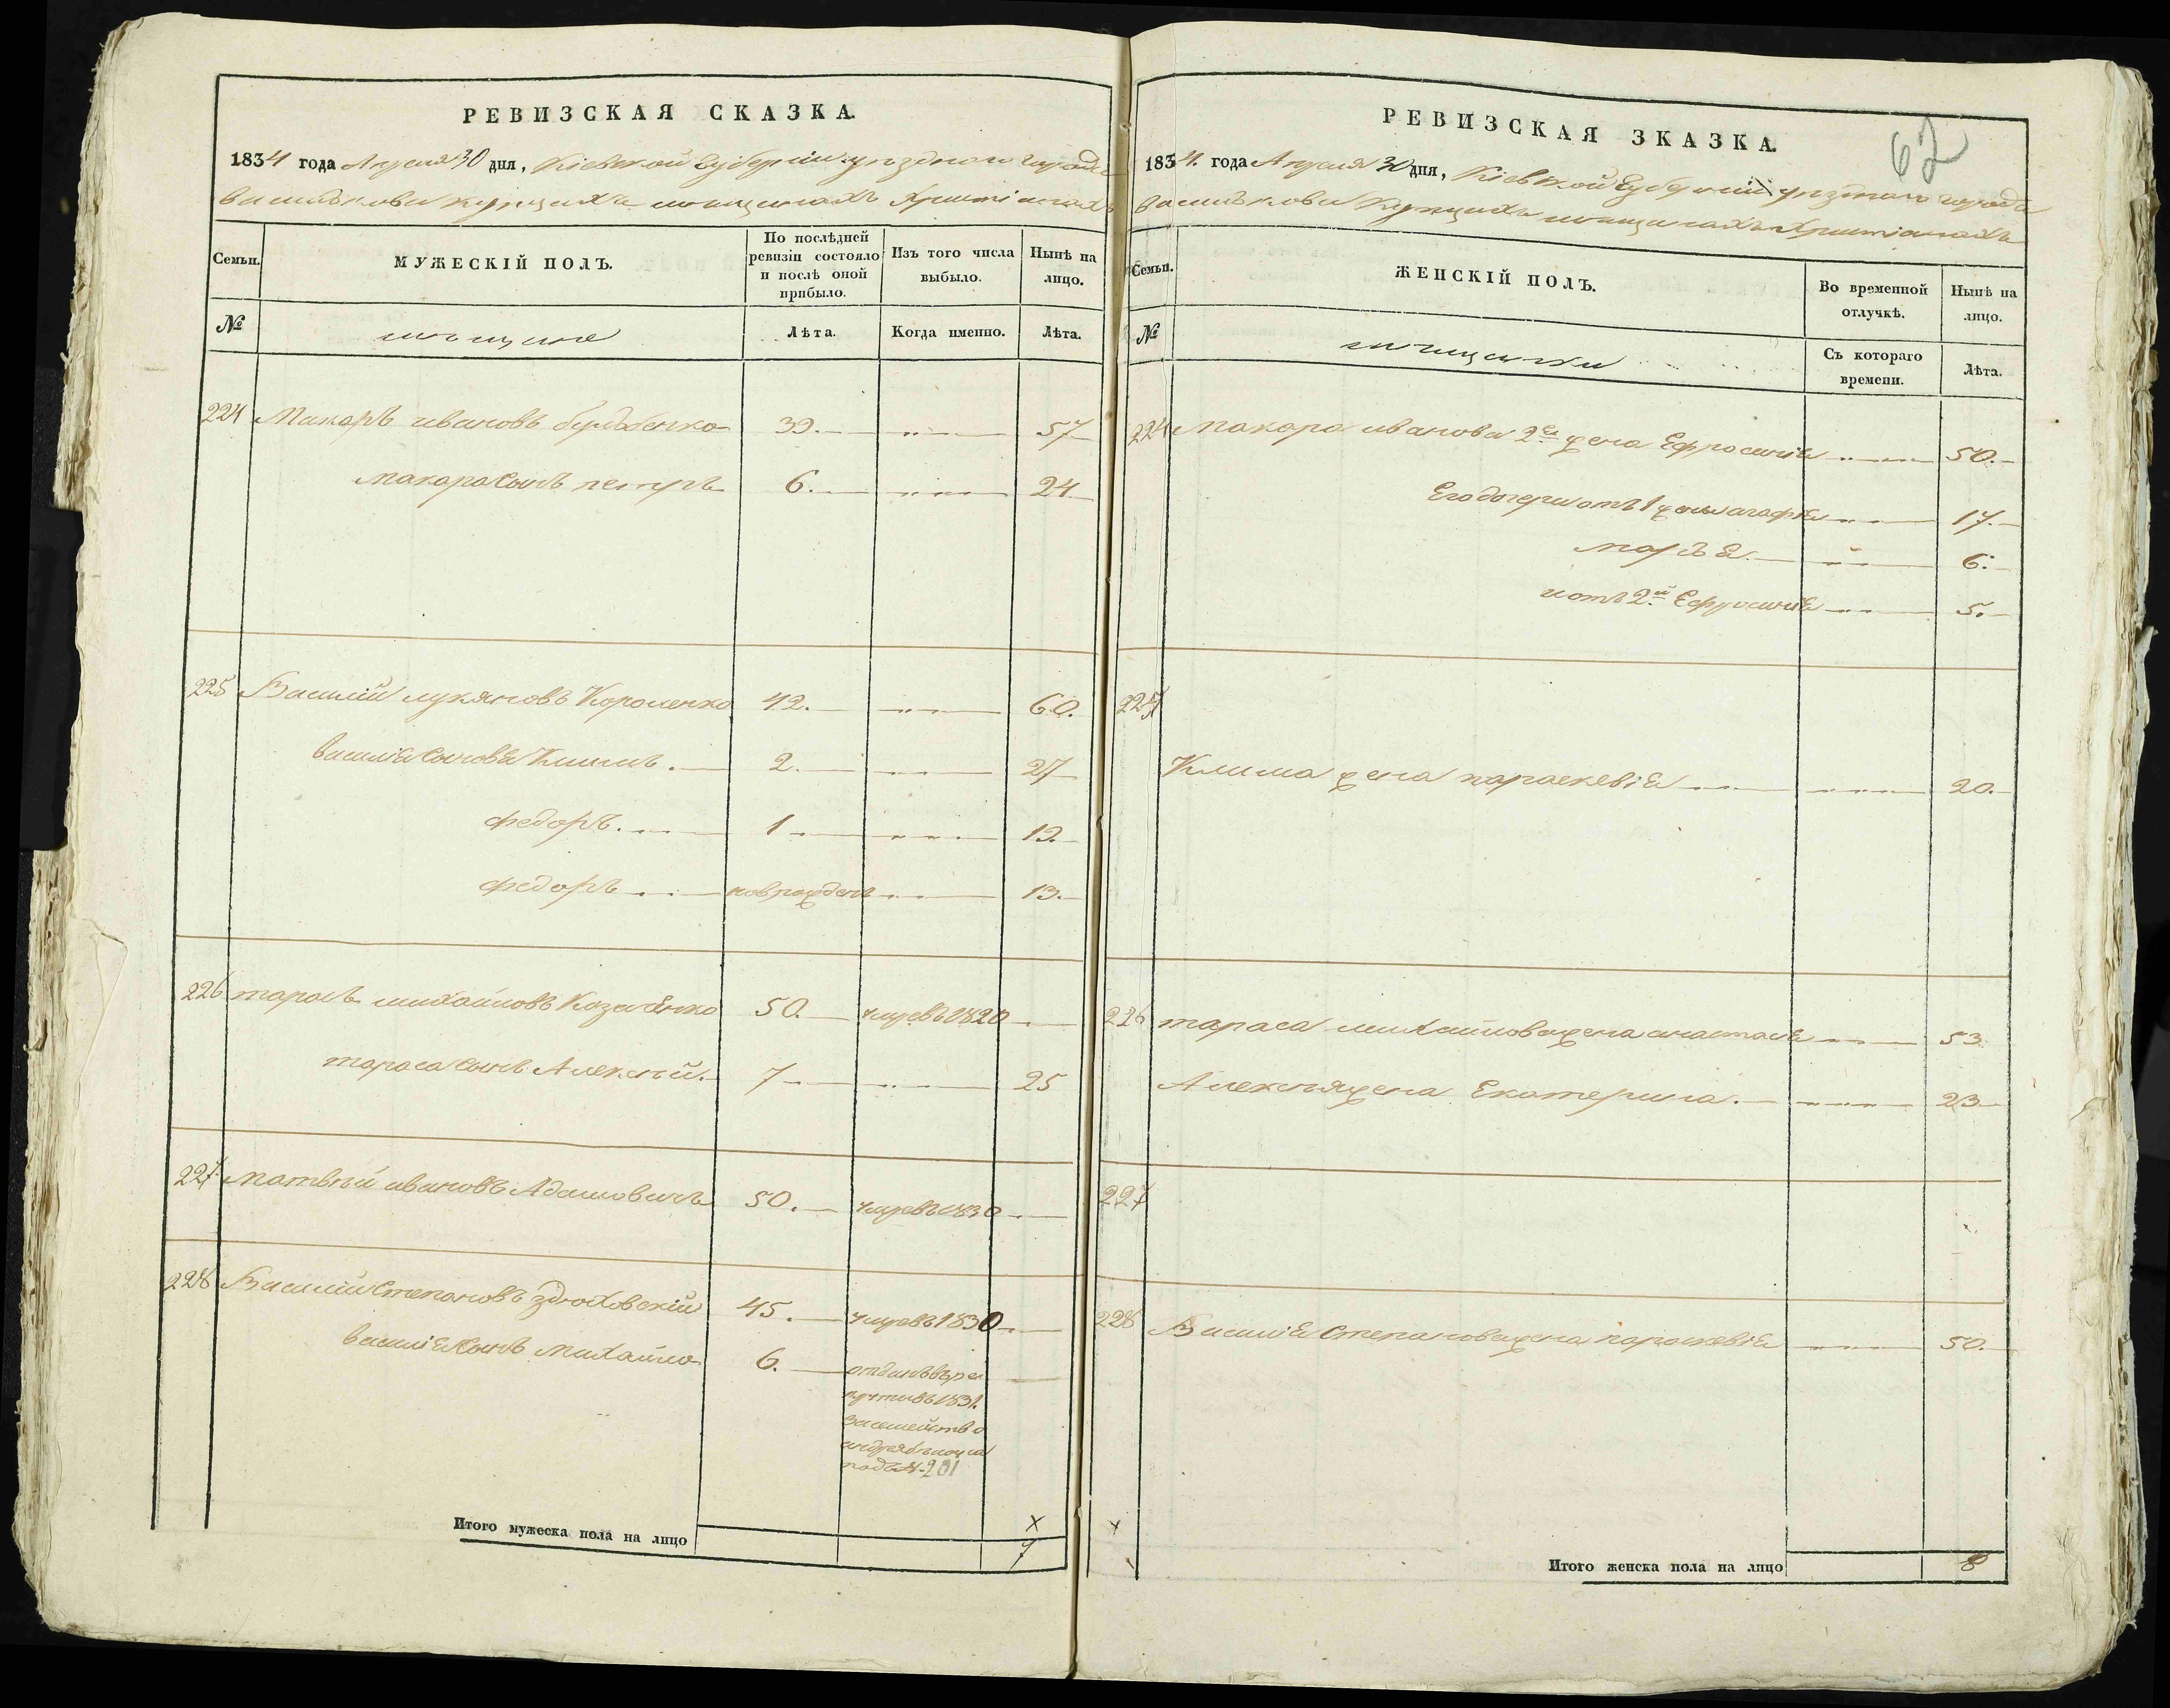 РЕВИЗСКАЯ СКАЗКА.
1834 года Апреля 30 дня, Кіевской Губерніи уезднаго города
Василькова Купцахъ мещанахъ Христіанахъ
Семьи.
МУЖЕСКІЙ ПОЛЪ.
По послѣдней ревизіи состояло и послѣ оной прибыло.
Изъ того числа выбыло.
Нынѣ на лицо.
№
мещане
Лѣта.
Когда именно.
Лѣта.
224 Макаръ ивановъ 39. 57
макара сынъ петръ 6. 24
225 Василій лукяновъ Короленко 42. 60.
василія сыновя Климъ. 2. 27
федоръ. 1 19.
федоръ новрожденъ 13.
226 тарасъ михайловъ Козаченко 50. умревъ 1820
тараса сынъ Алексей. 7 25
227 матвей ивановъ Адамовичъ 50. умревъ 1830
228 Василій Степановъ здюховскій 45. умревъ 1830
василія сынъ михайло 6. отданъ въ ре
крути въ 1831.
за семейство
андрея
подъ № 201
Итого мужеска пола на лицо 7
РЕВИЗСКАЯ ЗКАЗКА.
62
1834. года Апреля 30 дня, Кіевской Губерніи уезднаго города
Василькова Купцахъ мещанахъ Христіанахъ
Семьи.
ЖЕНСКІЙ ПОЛЪ.
Во временной отлучкѣ.
Нынѣ на лицо.
№
мещанки
Съ котораго времени.
Лѣта.
224 макара иванова 2я жена Ефросинія 50.
Его дочери отъ 1 жены агафія 17.
марья. 6.
и отъ 2й Ефросинія 5.
225
Клима жена параскевія 20.
226 тараса михайлова жена анастасія 53
Алексея жена Екатерина. 23
227
228 Василія Степанова жена параскевія 50.
Итого женска пола на лицо 8